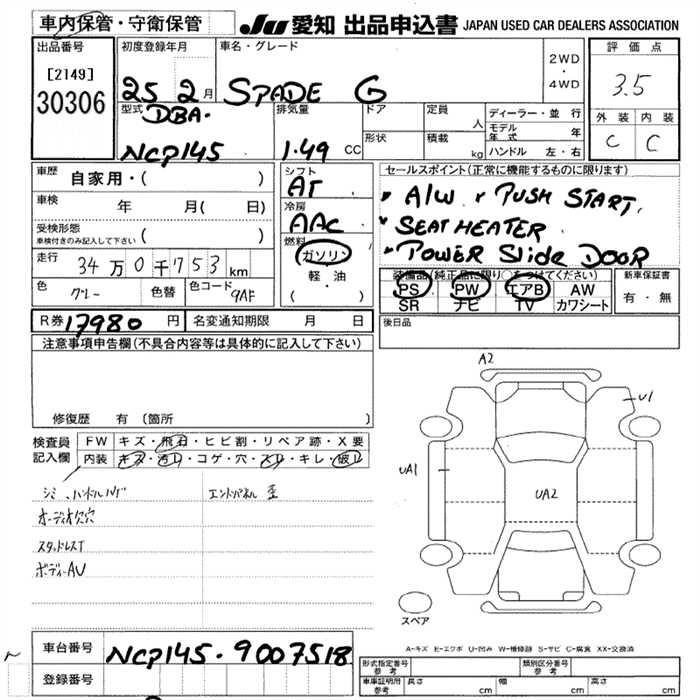 車内保管・守衛保管
JU 愛知 出品申込書 JAPAN USED CAR DEALERS ASSOCIATION
出品番号
[2149]
30306
初度登録年月
25 2月
車名・グレード
SPADE G
2WD
・
4WD
評価点
3.5
外装 内装
C C
型式
DBA-
NCP145
排気量
1.49 CC
ドア
形状
定員 人
積載 kg
ディーラー・並行
モデル年式 年
ハンドル 左・右
車歴
自家用・( )
車検 年 月( 日)
受検形態
車検付きのみ記入して下さい ( )
走行 34万0千753km
色 グレー 色替 色コード 9AF
シフト
AT
冷房
AAC
燃料
ガソリン
軽・油
( )
セールスポイント(正常に機能するものに限ります)
A/W PUSH START.
SEAT HEATER
POWER Slide DOOR
装備品(純正品に限り○をつけてください)
PS PW エアB AW
SR ナビ TV カワシート
新車保証書
有・無
後日品
R券 17980 円 名変通知期限 月 日
注意事項申告欄(不具合内容等は具体的に記入して下さい)
修復歴 有 (箇所 )
検査員記入欄
FW キズ・飛石・ヒビ割・リペア跡・X要
内装 キズ・汚レ・コゲ・穴・スレ・キレ・破レ
シミ、ハンドルハゲ エンドパネル 歪
オーディオ欠穴
スタッドレスT
ボディーAU
A2
U1
UA1
UA2
スペア
A-キズ E-エクボ U-凹み W-補修跡 S-サビ C-腐食 XX-交換済
車台番号 NCP145-9007518
登録番号
型式指定番号 参考
類別区分番号 参考
車庫証明用 参考 長さ cm 幅 cm 高さ cm